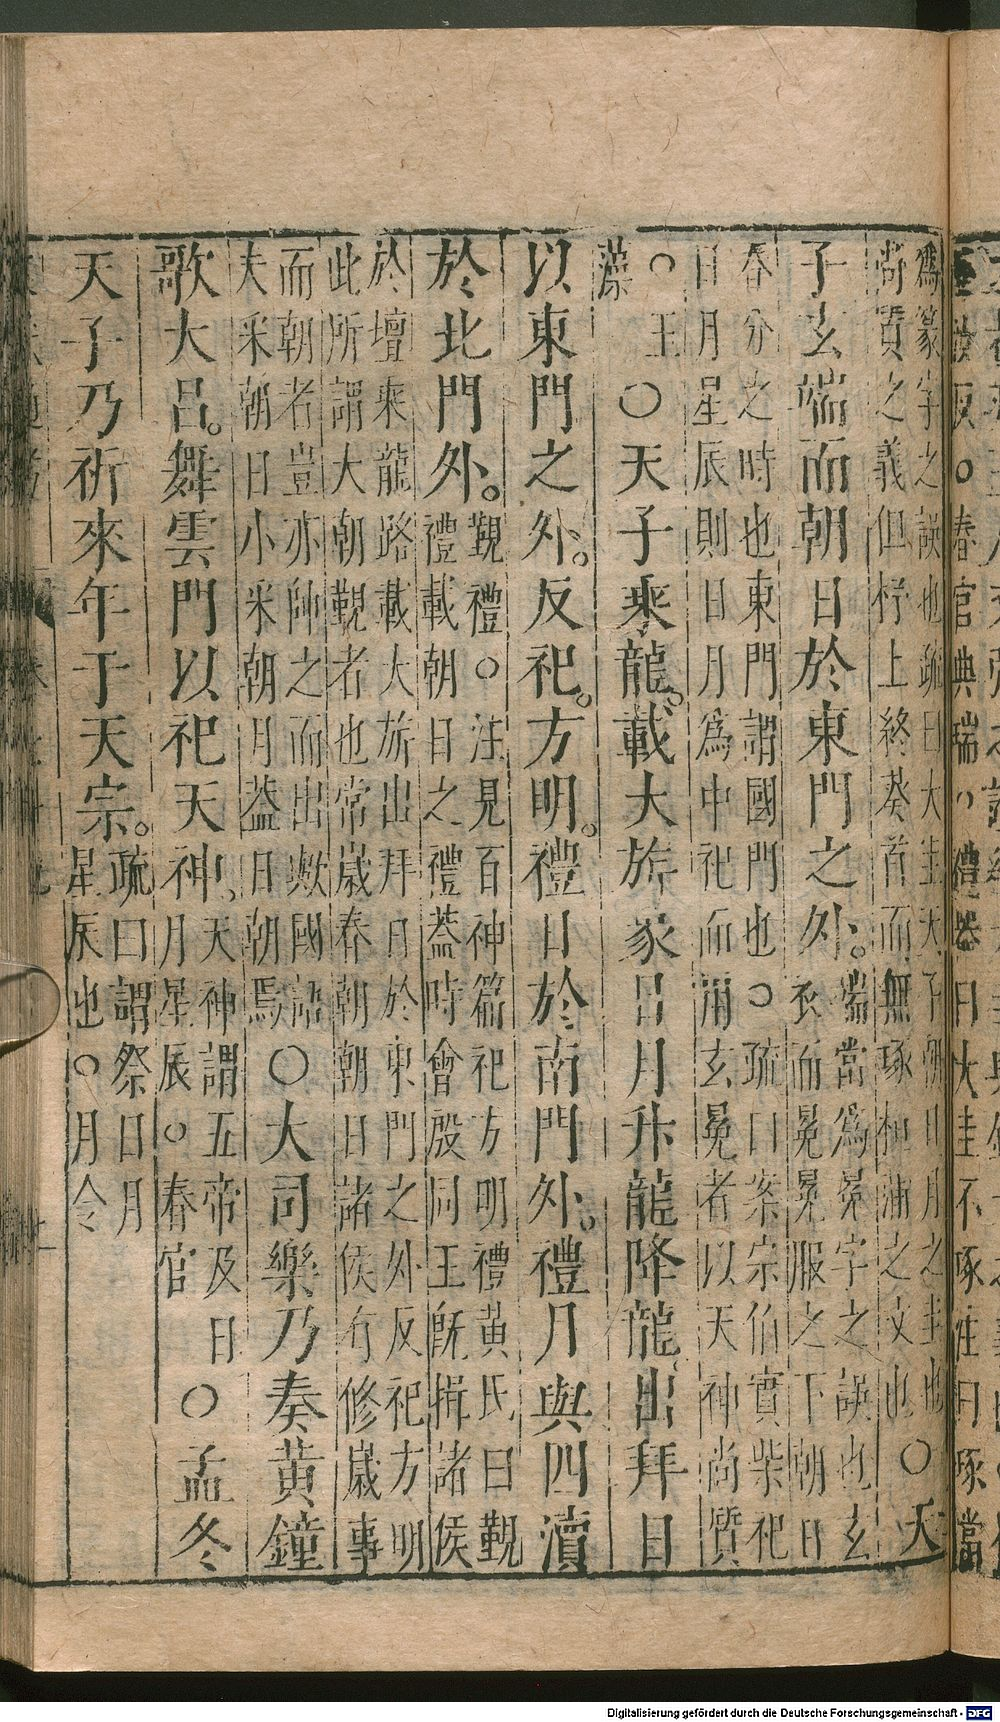 春官典瑞○禮器曰大圭不琢注曰琢當
爲篆字之誤也疏曰大圭天子朝日月之圭也
尚質之義但杼上終葵首而無琢桓蒲之文也○天
子玄端而朝日於東門之外。端當爲冕字之誤也玄
衣而冕冕服之下朝日
春分之時也東門謂國門也○疏曰案宗伯實柴祀
日月星辰則日月爲中祀而用玄冕者以天神尚質
○玉
藻○天子乘龍。載大旂象日月升龍降龍出拜日
以東門之外。反祀。方明。禮日於南門外。禮月與四瀆
於北門外。覲禮○注見百神篇祀方明禮黃氏曰覲
禮載朝日之禮蓋時會殷同王旣揖諸侯
於壇乘龍路載大旂出拜日於東門之外反祀方明
此所謂大朝覲者也常歲春朝朝日諸侯有修歲事
而朝者豈亦帥之而出歟國語
夫采朝日小采朝月蓋日朝焉○大司樂乃奏黃鐘
歌大呂。舞雲門以祀天神。天神謂五帝及日
月星辰○春官○孟冬
天子乃祈來年于天宗。疏曰謂祭日月
星辰也○月令
Digitalisierung gefördert durch die Deutsche Forschungsgemeinschaft - DFG